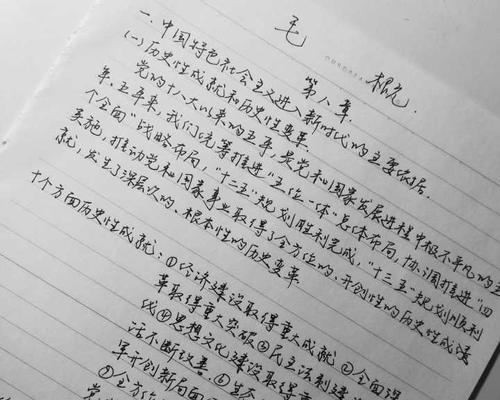 毛 概.
第八章.
一、中国特色社会主义进入新时代的主要依据.
(一)历史性成就和历史性变革.
党的十八大以来的五年,是党和国家发展进程中极不平凡的五
年.五年来,我们统筹推进"五位一体"总体布局,协调推进"四
个全面"战略布局,"十二五"规划胜利完成,"十三五"规划顺利
实施,推动党和国家事业取得了全方位的、开创性的历史性成
就,发生了深层次的、根本性的历史变革
十个方面历史性成就:①经济建设取得重大成就②全面深
革取得重大突破③民主法制建
代④思想文化建设取得重
活不断改善⑥生
军开创新局面
⑨全方位